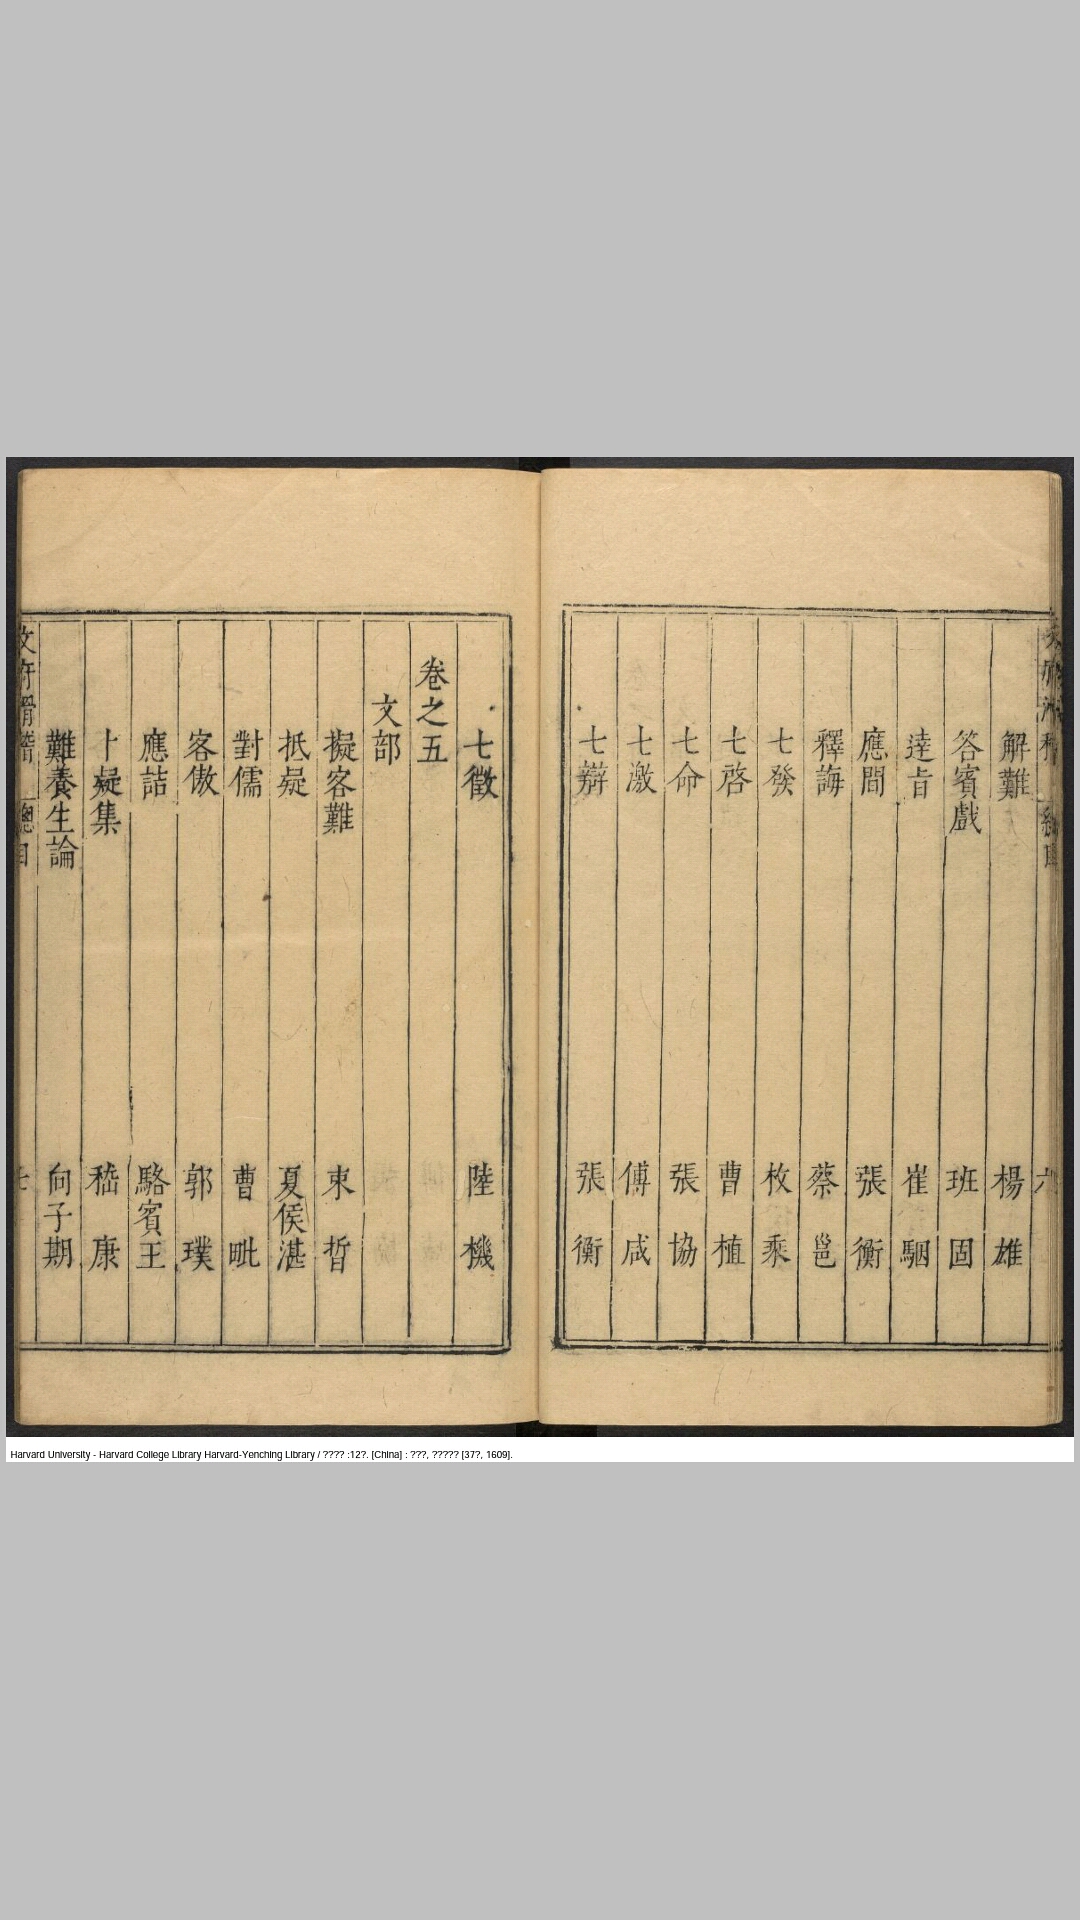 解難 楊雄
答賓戲 班固
達旨 崔駰
應間 張衡
釋誨 蔡邕
七發 枚乘
七啓 曹植
七命 張協
七激 傅咸
七辯 張衡
七徵 陸機
卷之五
文部
擬客難 束晳
抵疑 夏侯湛
對儒 曹毗
客傲 郭璞
應詰 駱賓王
卜疑集 嵇康
難養生論 向子期
Harvard University - Harvard College Library Harvard-Yenching Library / ???? :12?. [China] : ???, ????? [37?, 1609].